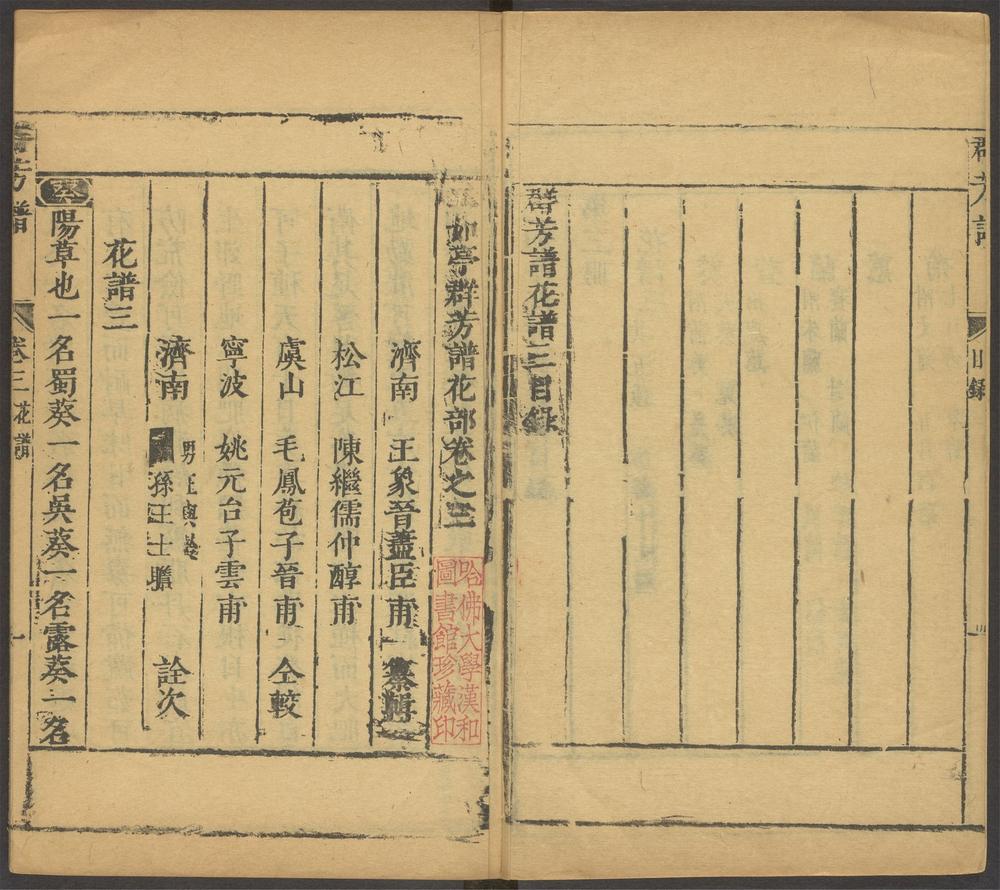 群芳譜
目錄
群芳譜花譜三目錄
二如亭群芳譜花部卷之三
濟南 王象晉藎臣甫 纂輯
松江 陳繼儒仲醇甫
虞山 毛鳳苞子晉甫 仝較
寧波 姚元台子雲甫
濟南 男王與齡
孫王士瞻 詮次
花譜三
葵 陽草也一名蜀葵一名吳葵一名露葵一名
群芳譜
卷三 花譜
一
哈佛大學漢和
圖書館珍藏印